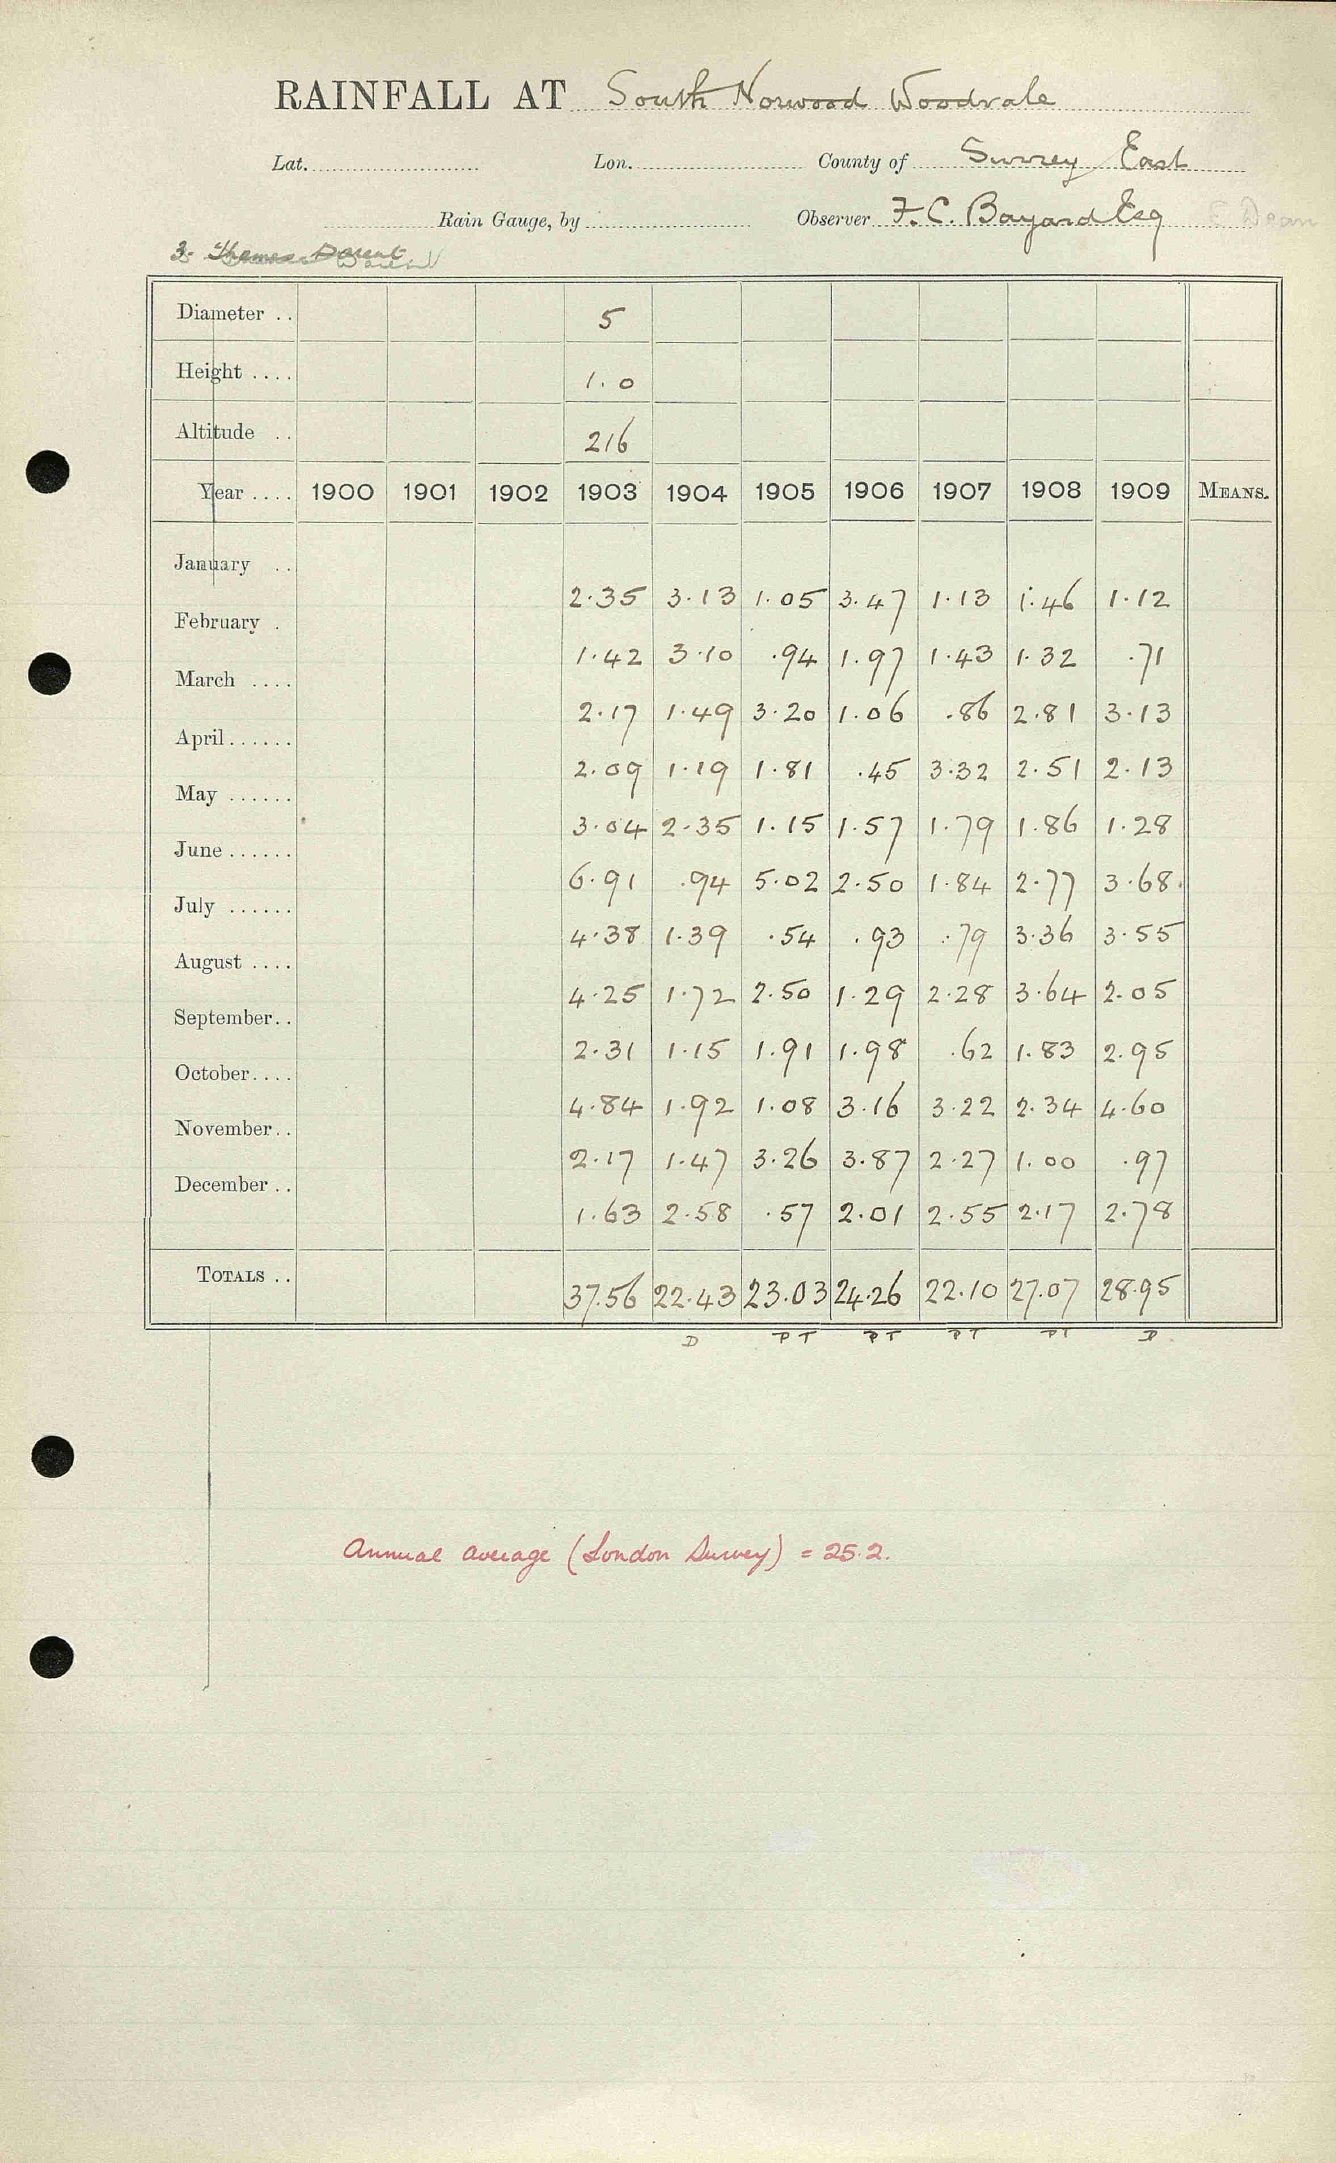 RAINFALL AT South Norwood Woodvale
Lat. Lon. County of Surrey East
Rain Gauge, by Observer F. C. Bayard Esq E Dean
3. Thames Darent
Diameter .. 5
Height .... 1.0
Altitude .. 216
Year .... 1900 1901 1902 1903 1904 1905 1906 1907 1908 1909 MEANS.
January .. 2.35 3.13 1.05 3.47 1.13 1.46 1.12
February . 1.42 3.10 .94 1.97 1.43 1.32 .71
March .... 2.17 1.49 3.20 1.06 .86 2.81 3.13
April...... 2.09 1.19 1.81 .45 3.32 2.51 2.13
May ...... 3.04 2.35 1.15 1.57 1.79 1.86 1.28
June...... 6.91 .94 5.02 2.50 1.84 2.77 3.68.
July ...... 4.38 1.39 .54 .93 .79 3.36 3.55
August .... 4.25 1.72 2.50 1.29 2.28 3.64 2.05
September.. 2.31 1.15 1.91 1.98 .62 1.83 2.95
October.... 4.84 1.92 1.08 3.16 3.22 2.34 4.60
November.. 2.17 1.47 3.26 3.87 2.27 1.00 .97
December .. 1.63 2.58 .57 2.01 2.55 2.17 2.78
TOTALS .. 37.56 22.43 23.03 24.26 22.10 27.07 28.95
D PT PT PT PT D
Annual average (London Survey) = 25.2.